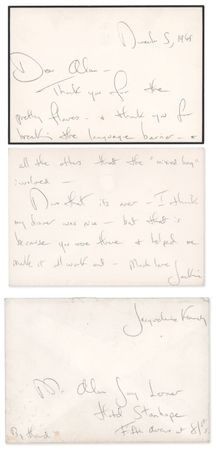 December 5, 1968
Dear Alan -
Thank you for the
pretty flowers - & thank you for
breaking the language barrier - &
all the others that the "mixed bag"
involved -
Now that it's over - I think
my dinner was nice - but that is
because you were there & helped me
make it all work out - Much love
Jackie
Jacqueline Kennedy
Mr. Alan Jay Lerner
Hotel Stanhope
Fifth Avenue at 81st
By Hand